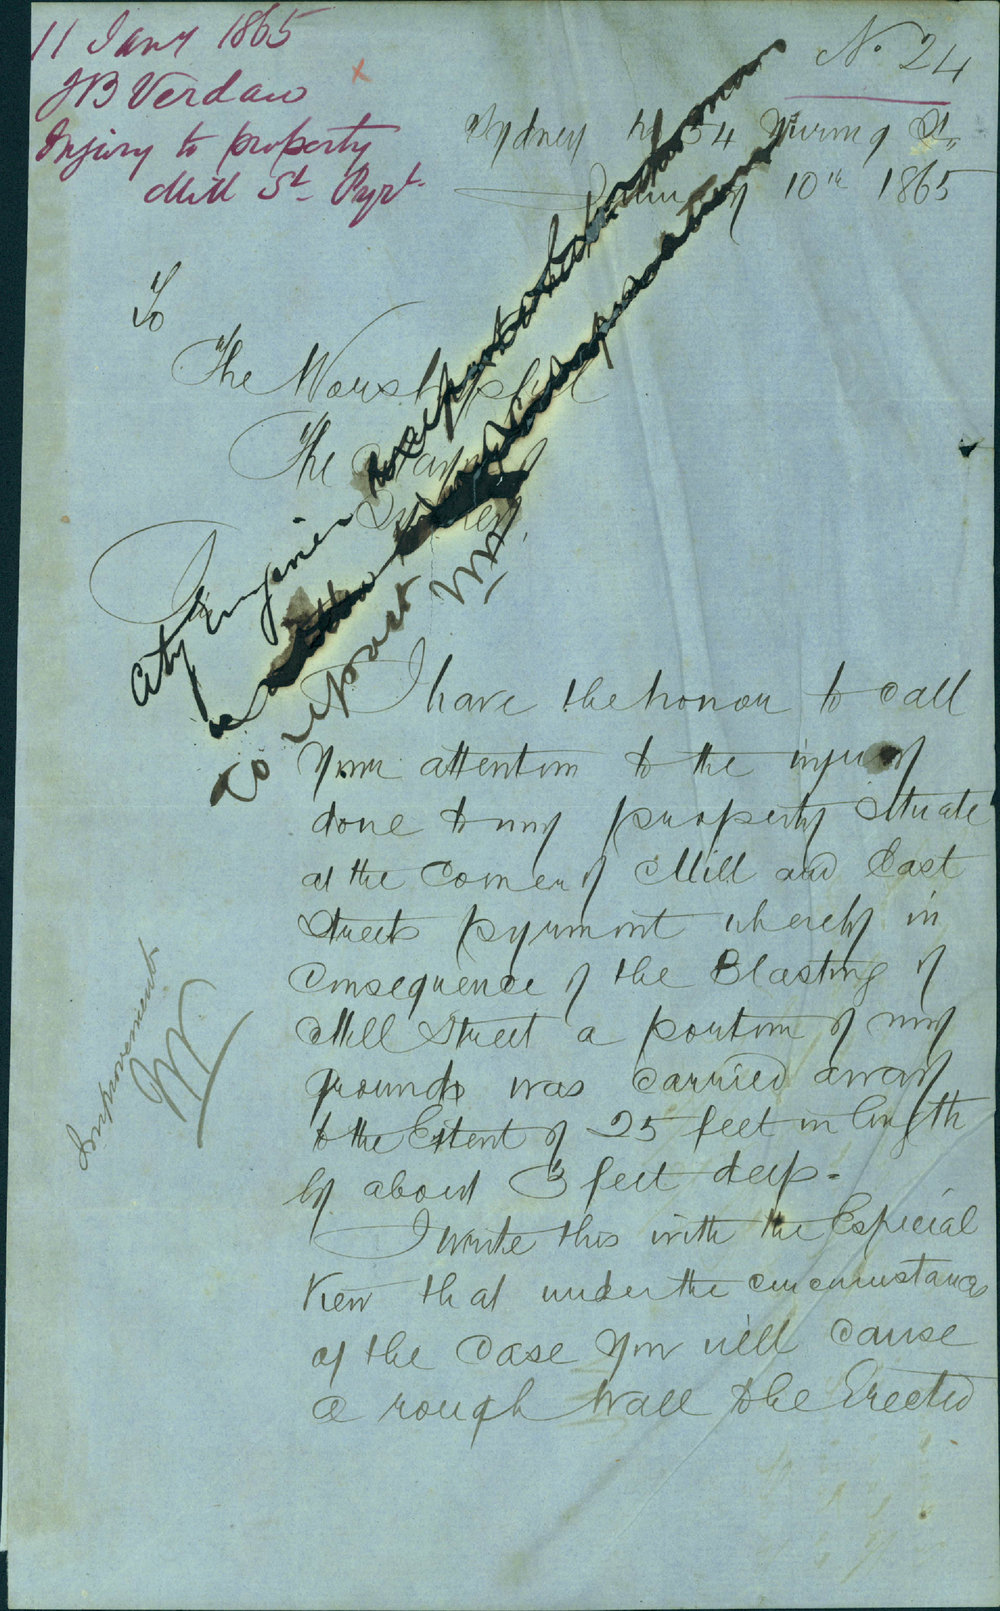 11 Jany 1865
J B Verdaw
Injury to property
Mill St. Pyrt.
x
No. 24
Sydney 54 St
January 10th 1865
To
The Worshipful
The Mayor
Sydney
City Engineer
to report
I have the honour to call
Your attention to the injury
done to my property situate
at the Corner of Mill and East
Streets Pyrmont whereby in
Consequence of the Blasting of
Mill Street a portion of my
ground was carried away
to the Extent of 25 feet in length
by about 3 feet deep -
I write this with the Especial
View that under the circumstances
of the Case You will cause
a rough Wall to be Erected
Improvement